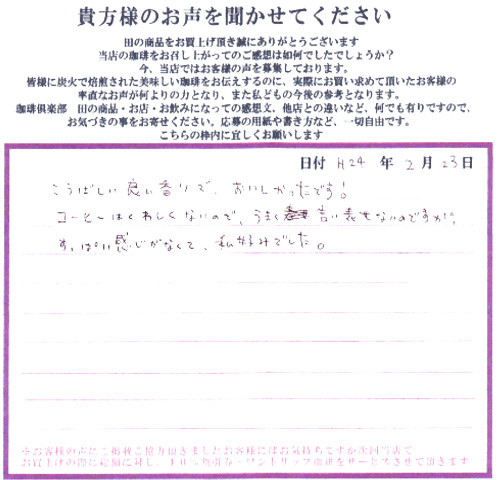 貴方様のお声を聞かせてください
田の商品をお買上げ頂き誠にありがとうございます
当店の珈琲をお召し上がってのご感想は如何でしたでしょうか？
今、当店ではお客様の声を募集しております。
皆様に炭火で焙煎された美味しい珈琲をお伝えするのに、実際にお買い求めて頂いたお客様の
率直なお声が何よりの力となり、また私どもの今後の参考となります。
珈琲倶楽部　田の商品・お店・お飲みになっての感想文、他店との違いなど、何でも有りですので、
お気づきの事をお寄せください。応募の用紙や書き方など、一切自由です。
こちらの枠内に宜しくお願いします
日付 H24 年 2 月 23 日
こうばしい良い香りで、おいしかったです！
コーヒーはくわしくないので、うまく言い表せないのですが、
すっぱい感じがなくて、私好みでした。
※お客様の声にご掲載ご協力頂きましたお客様にはお気持ちですが次回当店で
お買上げの際に総額に対し、
サービスさせて頂きます